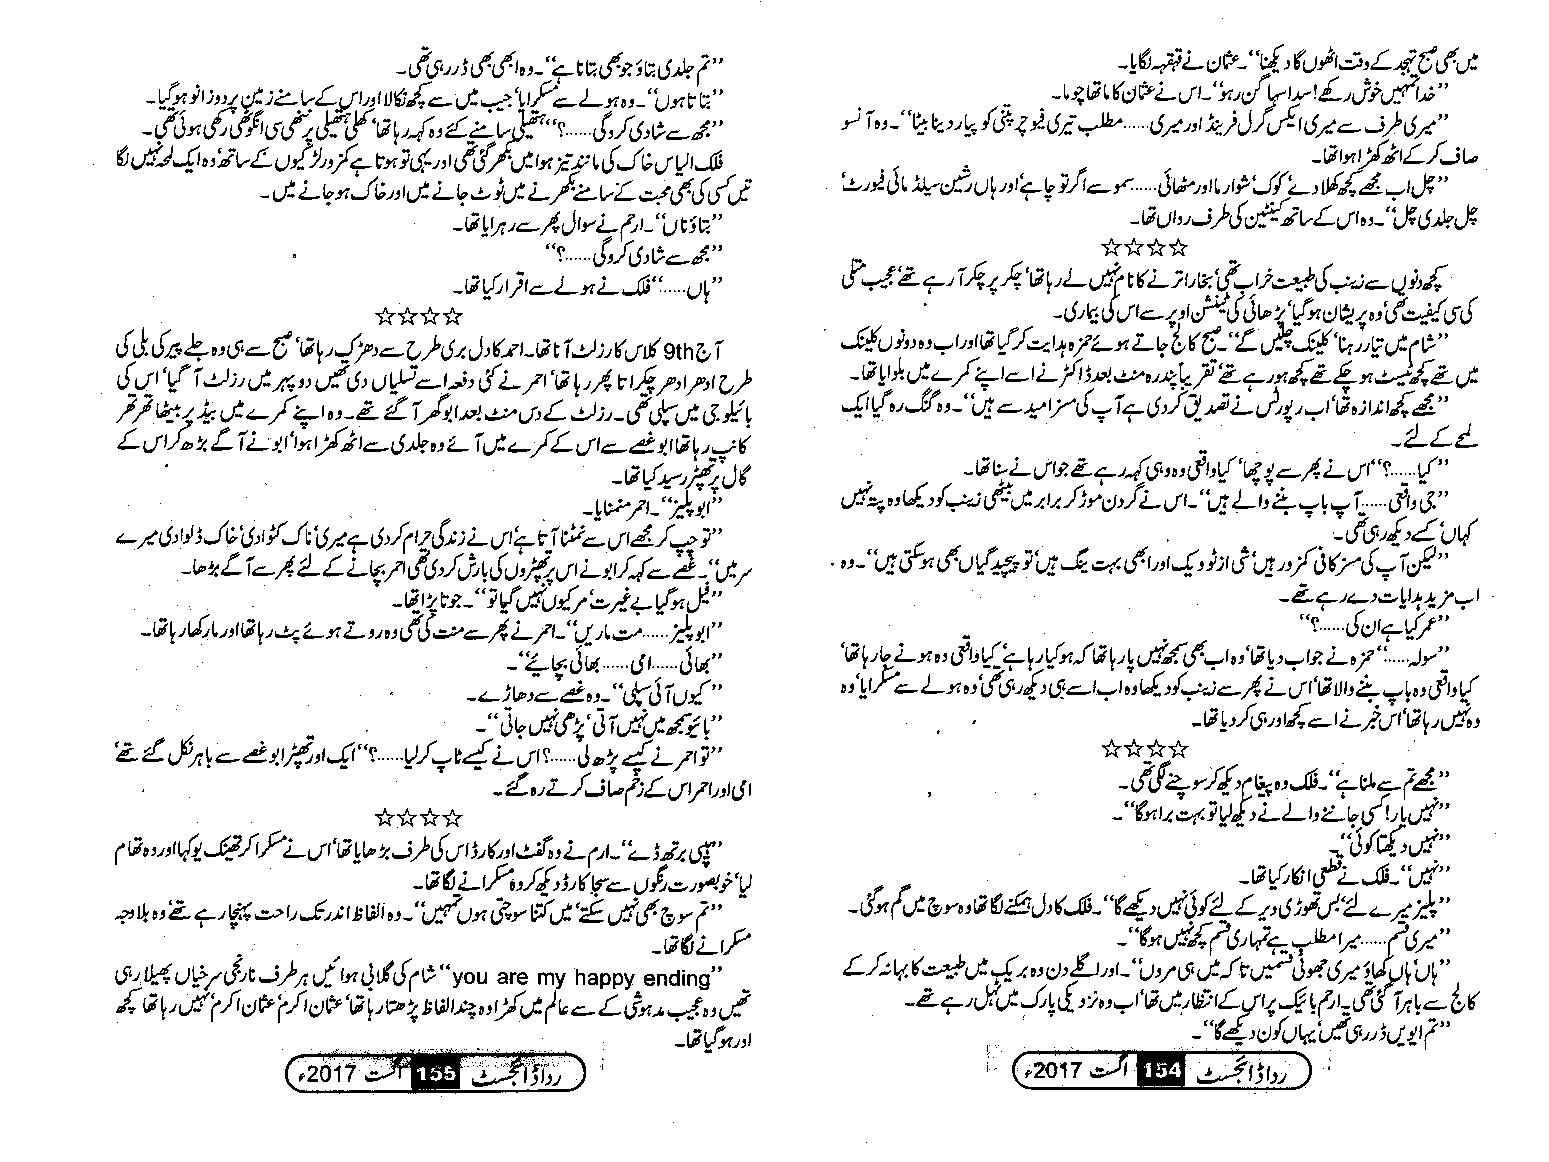 میں بھی صبح تہجد کے وقت اٹھوں گا دیکھنا‘‘۔ عثمان نے قہقہہ لگایا۔
’’خدا تمہیں خوش رکھے! سدا سہاگن رہو‘‘۔ اس نے عثمان کا ماتھا چوما۔
’’میری طرف سے میری ایکس گرل فرینڈ اور میری...... مطلب تیری فیوچر پتنی کو پیار دینا بیٹا‘‘۔ وہ آنسو
صاف کر کے اٹھ کھڑا ہوا تھا۔
’’چل اب مجھے کچھ کھلا دے‘ کوک‘ شوارما اور مٹھائی...... سموسے اگر تو چاہے‘ اور ہاں رشین سیلڈ مائی فیورٹ‘
چل جلدی چل‘‘۔ وہ اس کے ساتھ کینٹین کی طرف رواں تھا۔
☆☆☆☆
کچھ دنوں سے زینب کی طبیعت خراب تھی‘ بخار اترنے کا نام نہیں لے رہا تھا‘ چکر پر چکر آ رہے تھے‘ عجیب متلی
کی سی کیفیت تھی‘ وہ پریشان ہو گیا‘ پڑھائی کی ٹینشن اوپر سے اس کی بیماری۔
’’شام میں تیار رہنا‘ کلینک چلیں گے‘‘۔ صبح کالج جاتے ہوئے حمزہ ہدایت کر گیا تھا اور اب وہ دونوں کلینک
میں تھے کچھ ٹیسٹ ہو چکے تھے کچھ ہو رہے تھے‘ تقریباً پندرہ منٹ بعد ڈاکٹر نے اسے اپنے کمرے میں بلوایا تھا۔
’’مجھے کچھ اندازہ تھا‘ اب رپورٹس نے تصدیق کر دی ہے آپ کی مسز امید سے ہیں‘‘۔ وہ گنگ رہ گیا ایک
لمحے کے لئے۔
’’کیا......؟‘‘ اس نے پھر سے پوچھا‘ کیا واقعی وہ وہی کہہ رہے تھے جو اس نے سنا تھا۔
’’جی واقعی...... آپ باپ بننے والے ہیں‘‘۔ اس نے گردن موڑ کر برابر میں بیٹھی زینب کو دیکھا وہ پتہ نہیں
کہاں‘ کسے دیکھ رہی تھی۔
’’لیکن آپ کی مسز کافی کمزور ہیں‘ شی از ٹو ویک اور ابھی بہت ینگ ہیں‘ تو پیچیدگیاں بھی ہو سکتی ہیں‘‘۔ وہ
اب مزید ہدایات دے رہے تھے۔
’’عمر کیا ہے ان کی......؟‘‘
’’سولہ......‘‘ حمزہ نے جواب دیا تھا‘ وہ اب بھی سمجھ نہیں پا رہا تھا کہ ہو کیا رہا ہے‘ کیا واقعی وہ ہونے جا رہا تھا‘
کیا واقعی وہ باپ بننے والا تھا‘ اس نے پھر سے زینب کو دیکھا وہ اب اسے ہی دیکھ رہی تھی‘ وہ ہولے سے مسکرایا‘ وہ
وہ نہیں رہا تھا‘ اس خبر نے اسے کچھ اور ہی کر دیا تھا۔
☆☆☆☆
’’مجھے تم سے ملنا ہے‘‘۔ فلک وہ پیغام دیکھ کر سوچنے لگی تھی۔
’’نہیں یار! کسی جاننے والے نے دیکھ لیا تو بہت برا ہو گا‘‘۔
’’نہیں دیکھتا کوئی‘‘۔
’’نہیں‘‘۔ فلک نے قطعی انکار کیا تھا۔
’’پلیز میرے لئے‘ بس تھوڑی دیر کے لئے کوئی نہیں دیکھے گا‘‘۔ فلک کا دل ہمکنے لگا تھا وہ سوچ میں گم ہو گئی۔
’’میری قسم...... میرا مطلب ہے تمہاری قسم کچھ نہیں ہو گا‘‘۔
’’ہاں‘ ہاں کھاؤ میری جھوٹی قسمیں تاکہ میں ہی مروں‘‘۔ اور اگلے دن وہ بریک میں طبیعت کا بہانہ کر کے
کالج سے باہر آ گئی تھی۔ ارحم بائیک پر اس کے انتظار میں تھا‘ اب وہ نزدیکی پارک میں ٹہل رہے تھے۔
’’تم ایویں ڈر رہی تھیں‘ یہاں کون دیکھے گا‘‘۔
ردا ڈائجسٹ 154 اگست 2017ء
’’تم جلدی بتاؤ جو بھی بتانا ہے‘‘۔ وہ ابھی بھی ڈر رہی تھی۔
’’بتاتا ہوں‘‘۔ وہ ہولے سے مسکرایا‘ جیب میں سے کچھ نکالا اور اس کے سامنے زمین پر دوزانو ہو گیا۔
’’مجھ سے شادی کرو گی......؟‘‘ ہتھیلی سامنے کئے وہ کہہ رہا تھا‘ کھلی ہتھیلی پر ننھی سی انگوٹھی رکھی ہوئی تھی۔
فلک الیاس خاک کی مانند تیز ہوا میں بکھر گئی تھی اور یہی تو ہوتا ہے کمزور لڑکیوں کے ساتھ‘ وہ ایک لمحہ نہیں لگا
تیں کسی کی بھی محبت کے سامنے بکھرنے میں ٹوٹ جانے میں اور خاک ہو جانے میں۔
’’بتاؤ ناں‘‘۔ ارحم نے سوال پھر سے دہرایا تھا۔
’’مجھ سے شادی کرو گی......؟‘‘
’’ہاں......‘‘ فلک نے ہولے سے اقرار کیا تھا۔
☆☆☆☆
آج 9th کلاس کا رزلٹ آنا تھا۔ احمد کا دل بری طرح سے دھڑک رہا تھا‘ صبح سے ہی وہ جلے پیر کی بلی کی
طرح ادھر ادھر چکراتا پھر رہا تھا‘ احمر نے کئی دفعہ اسے تسلیاں دی تھیں دوپہر میں رزلٹ آ گیا‘ اس کی
بائیلوجی میں سپلی تھی۔ رزلٹ کے دس منٹ بعد ابو گھر آ گئے تھے۔ وہ اپنے کمرے میں بیڈ پر بیٹھا تھر تھر
کانپ رہا تھا ابو غصے سے اس کے کمرے میں آئے وہ جلدی سے اٹھ کھڑا ہوا‘ ابو نے آگے بڑھ کر اس کے
گال پر تھپڑ رسید کیا تھا۔
’’ابو پلیز‘‘۔ احمر منمنایا۔
’’تو چپ کر مجھے اس سے نمٹنا آتا ہے‘ اس نے زندگی حرام کر دی ہے میری‘ ناک کٹوا دی‘ خاک ڈلوا دی میرے
سر میں‘‘۔ غصے سے کہہ کر ابو نے اس پر تھپڑوں کی بارش کر دی تھی احمر بچانے کے لئے پھر سے آگے بڑھا۔
’’فیل ہو گیا بے غیرت‘ مر کیوں نہیں گیا تو‘‘۔ جوتا پڑا تھا۔
’’ابو پلیز...... مت ماریں‘‘۔ احمر نے پھر سے منت کی تھی وہ روتے ہوئے پٹ رہا تھا اور مار کھا رہا تھا۔
’’بھائی...... امی...... بھائی بچائے‘‘۔
’’کیوں آئی سپلی‘‘۔ وہ غصے سے دھاڑے۔
’’بائیو سمجھ میں نہیں آتی‘ پڑھی نہیں جاتی‘‘۔
’’تو احمر نے کیسے پڑھ لی......؟ اس نے کیسے ٹاپ کر لیا......؟‘‘ ایک اور تھپڑ ابو غصے سے باہر نکل گئے تھے‘
امی اور احمر اس کے زخم صاف کرتے رہ گئے۔
☆☆☆☆
’’ہیپی برتھ ڈے‘‘۔ ارم نے وہ گفٹ اور کارڈ اس کی طرف بڑھایا تھا‘ اس نے مسکرا کر تھینک یو کہا اور وہ تھام
لیا‘ خوبصورت رنگوں سے سجا کارڈ دیکھ کر وہ مسکرانے لگا تھا۔
’’تم سوچ بھی نہیں سکتے‘ میں کتنا سوچتی ہوں تمہیں‘‘۔ وہ الفاظ اندر تک راحت پہنچا رہے تھے‘ وہ بلاوجہ
مسکرانے لگا تھا۔
’’you are my happy ending‘‘ شام کی گلابی ہوائیں ہر طرف نارنجی سرخیاں پھیلا رہی
تھیں وہ عجیب مدہوشی کے سے عالم میں کھڑا وہ چند الفاظ پڑھتا رہا تھا‘ عثمان اکرم‘ عثمان اکرم نہیں رہا تھا‘ کچھ
اور ہو گیا تھا۔
ردا ڈائجسٹ 155 اگست 2017ء